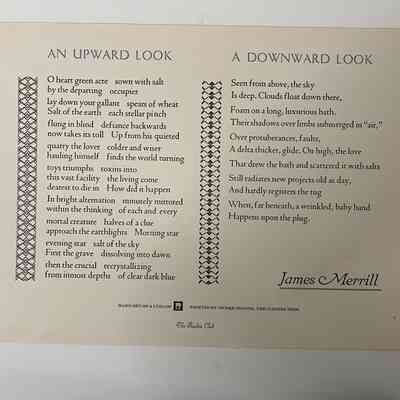 AN UPWARD LOOK
O heart green acre sown with salt
by the departing occupier
lay down your gallant spears of wheat
Salt of the earth each stellar pinch
flung in blind defiance backwards
now takes its toll Up from his quieted
quarry the lover colder and wiser
hauling himself finds the world turning
toys triumphs toxins into
this vast facility the living come
dearest to die in How did it happen
In bright alternation minutely mirrored
within the thinking of each and every
mortal creature halves of a clue
approach the earthlights Morning star
evening star salt of the sky
First the grave dissolving into dawn
then the crucial recrystallizing
from inmost depths of clear dark blue
A DOWNWARD LOOK
Seen from above, the sky
Is deep. Clouds float down there,
Foam on a long, luxurious bath.
Their shadows over limbs submerged in "air,"
Over protuberances, faults,
A delta thicket, glide. On high, the love
That drew the bath and scattered it with salts
Still radiates new projects old as day,
And hardly registers the tug
When, far beneath, a wrinkled, baby hand
Happens upon the plug.
James Merrill